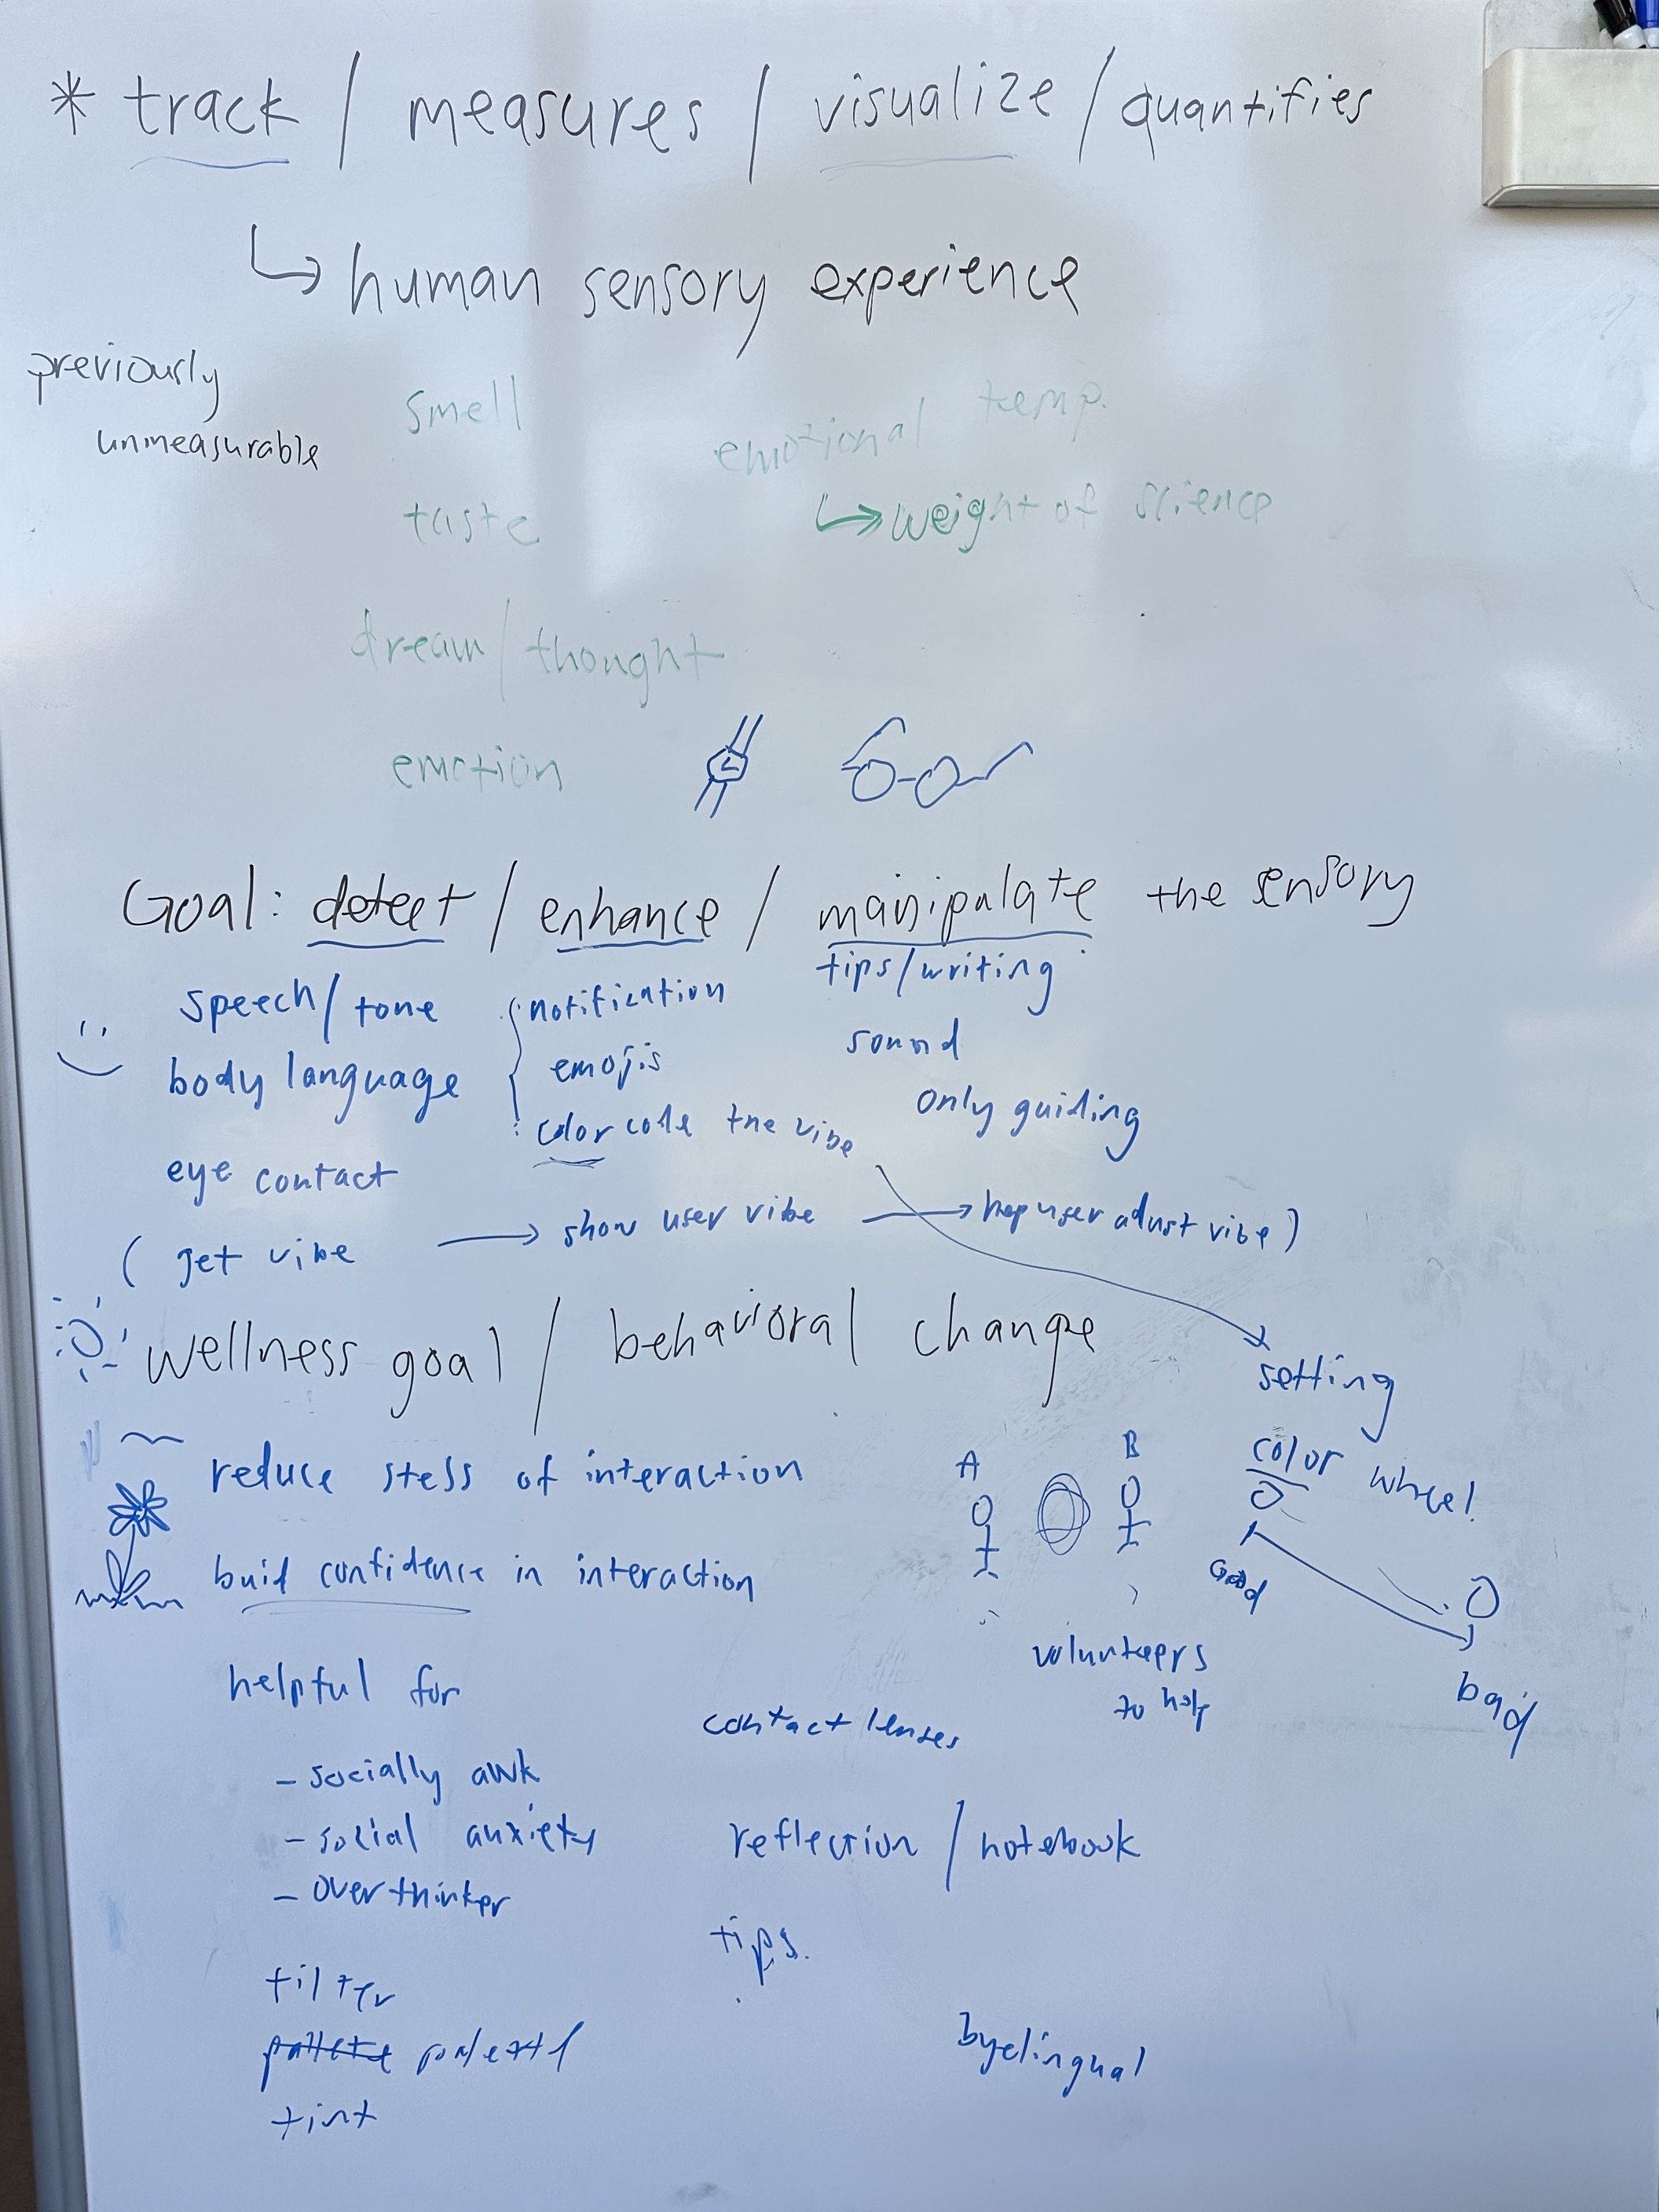 * track / measures / visualize / quantifies
↳ human sensory experience
previously
unmeasurable
smell
taste
dream / thought
emotion
emotional temp.
↳ weight of science
Goal: detect / enhance / manipulate the sensory
speech / tone
body language
eye contact
notification
emojis
color code the vibe
tips/writing
sound
only guiding
( get vibe → show user vibe → hep user adust vibe )
wellness goal / behavioral change
setting
color wheel
Good
bad
reduce stess of interaction
buid confidence in interaction
A
B
volunteers
to help
helpful for
- socially awk
- social anxiety
- overthinker
contact lenses
reflection / notebook
tips.
filter
pallete
tint
byelingual